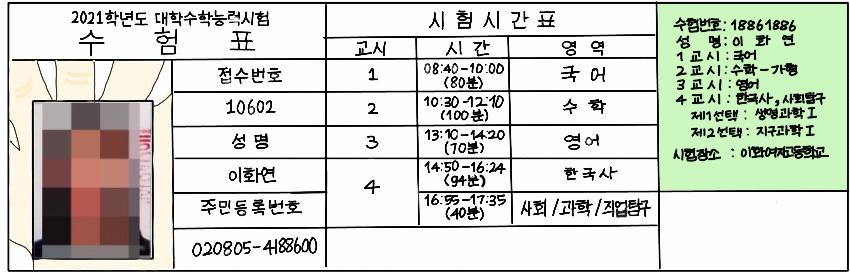 2021학년도 대학수학능력시험
수 험 표
접수번호
10602
성 명
이화연
주민등록번호
020805-4188600
시 험 시 간 표
교시 시 간 영 역
1 08:40-10:00 (80분) 국 어
2 10:30-12:10 (100분) 수 학
3 13:10-14:20 (70분) 영 어
4 14:50-16:24 (94분) 한 국 사
16:55-17:35 (40분) 사회/과학/직업탐구
수험번호: 18861886
성 명: 이 화 연
1 교 시 : 국어
2 교 시 : 수학-가형
3 교 시 : 영어
4 교 시 : 한국사, 사회탐구
제1선택 : 생명과학 I
제2선택 : 지구과학 I
시험장소 : 이화여자고등학교